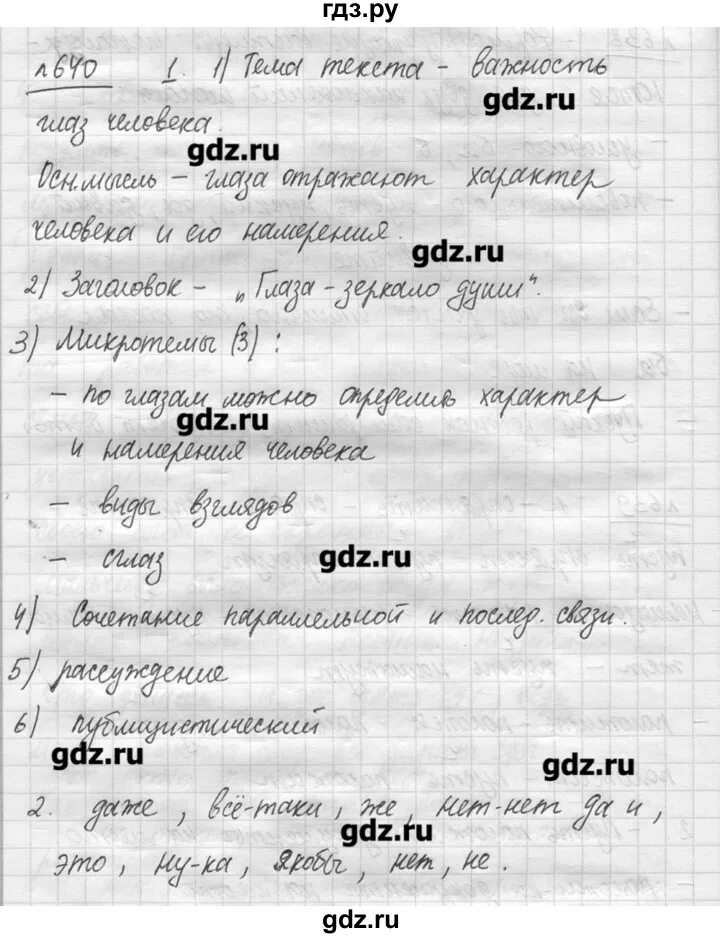 гдз.ру
№640 1. 1) Тема текста - важность
gdz.ru
глаз человека.
gdz.ru
Осн.мысль – глаза отражают характер
человека и его намерения.
gdz.ru
2) Заголовок – „Глаза - зеркало души".
3) Микротемы (3) :
– по глазам можно определить характер
gdz.ru
и намерения человека
– виды взглядов
– сглаз
gdz.ru
4) Сочетание параллельной и послед. связи.
5) рассуждение
6) публицистический
gdz.ru
gdz.ru
2. даже, всё-таки, же, нет-нет да и,
gdz.ru
это, ну-ка, якобы, нет, не.
gdz.ru